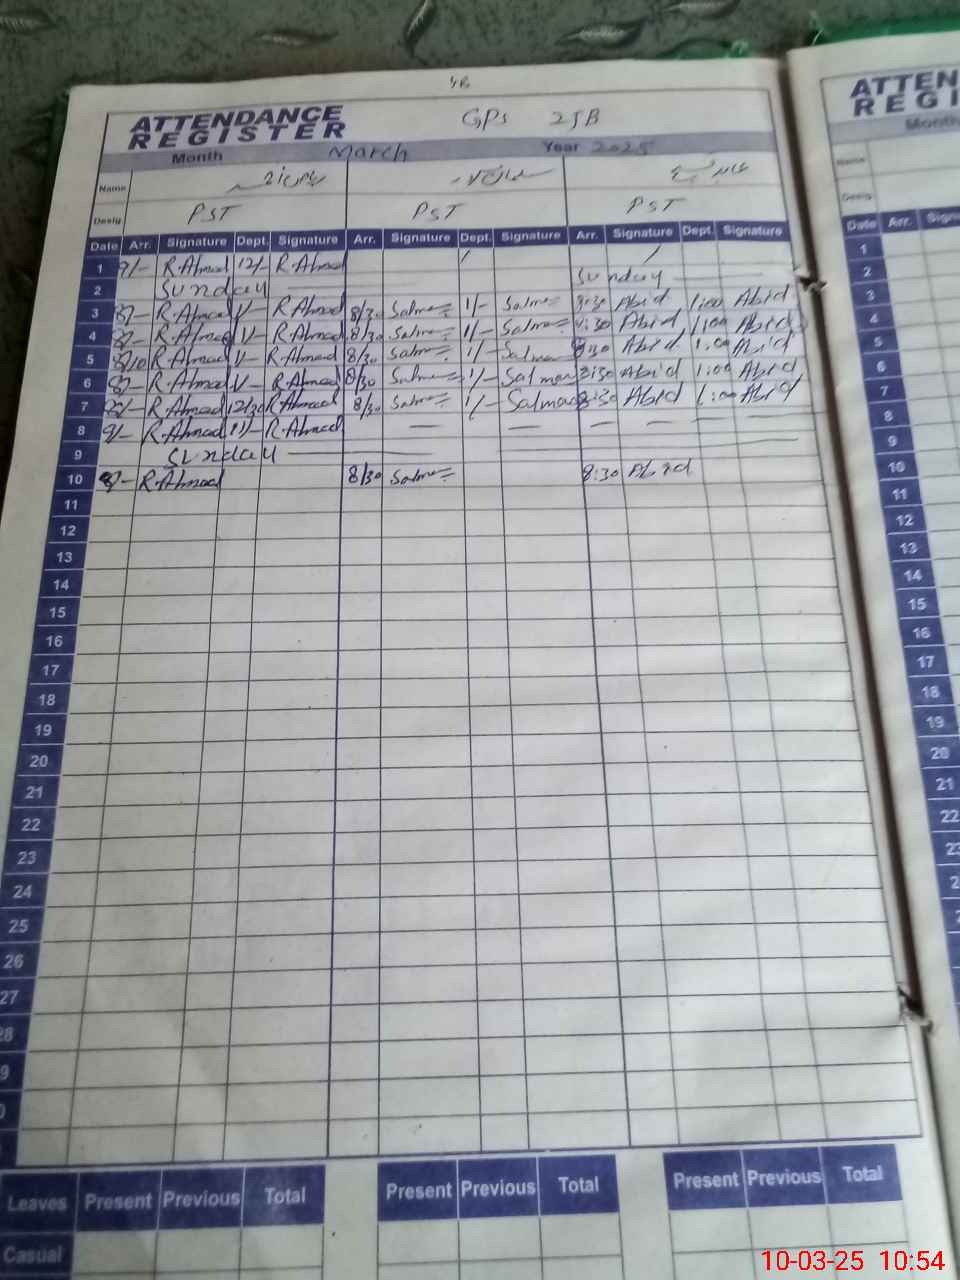 ATTENDANCE REGISTER
GPS 25B
Month March Year 2025
Name
Desig PST PST PST
Date Arr. Signature Dept. Signature Arr. Signature Dept. Signature Arr. Signature Dept. Signature
1 9/- R.Ahmad 12/- R.Ahmad
2 Sunday Sunday
3 8/- R.Ahmad 1/- R.Ahmad 8/30 Salman 1/- Salman 8:30 Abid 1:00 Abid
4 R.Ahmad 1/- R.Ahmad 8/30 Salman 1/- Salman 8:30 Abid 1:00 Abid
5 8/10 R.Ahmad 1/- R.Ahmad 8/30 Salman 1/- Salman 8:30 Abid 1:00 Abid
6 R.Ahmad 1/- R.Ahmad 8/30 Salman 1/- Salman 8:30 Abid 1:00 Abid
7 R.Ahmad 12/30 R.Ahmad 8/30 Salman 1/- Salman 8:30 Abid 1:00 Abid
8 9/- R.Ahmad R.Ahmad — — — —
9 Sunday
10 R.Ahmad 8/30 Salman 8:30 Abid
11
12
13
14
15
16
17
18
19
20
21
22
23
24
25
26
27
28
Leaves Present Previous Total Present Previous Total Present Previous Total
Casual
ATTEN
REGI
Month
Name
Desig
Date Arr. Signa
1
2
3
4
5
6
7
8
9
10
11
12
13
14
15
16
17
18
19
20
21
22
10-03-25 10:54